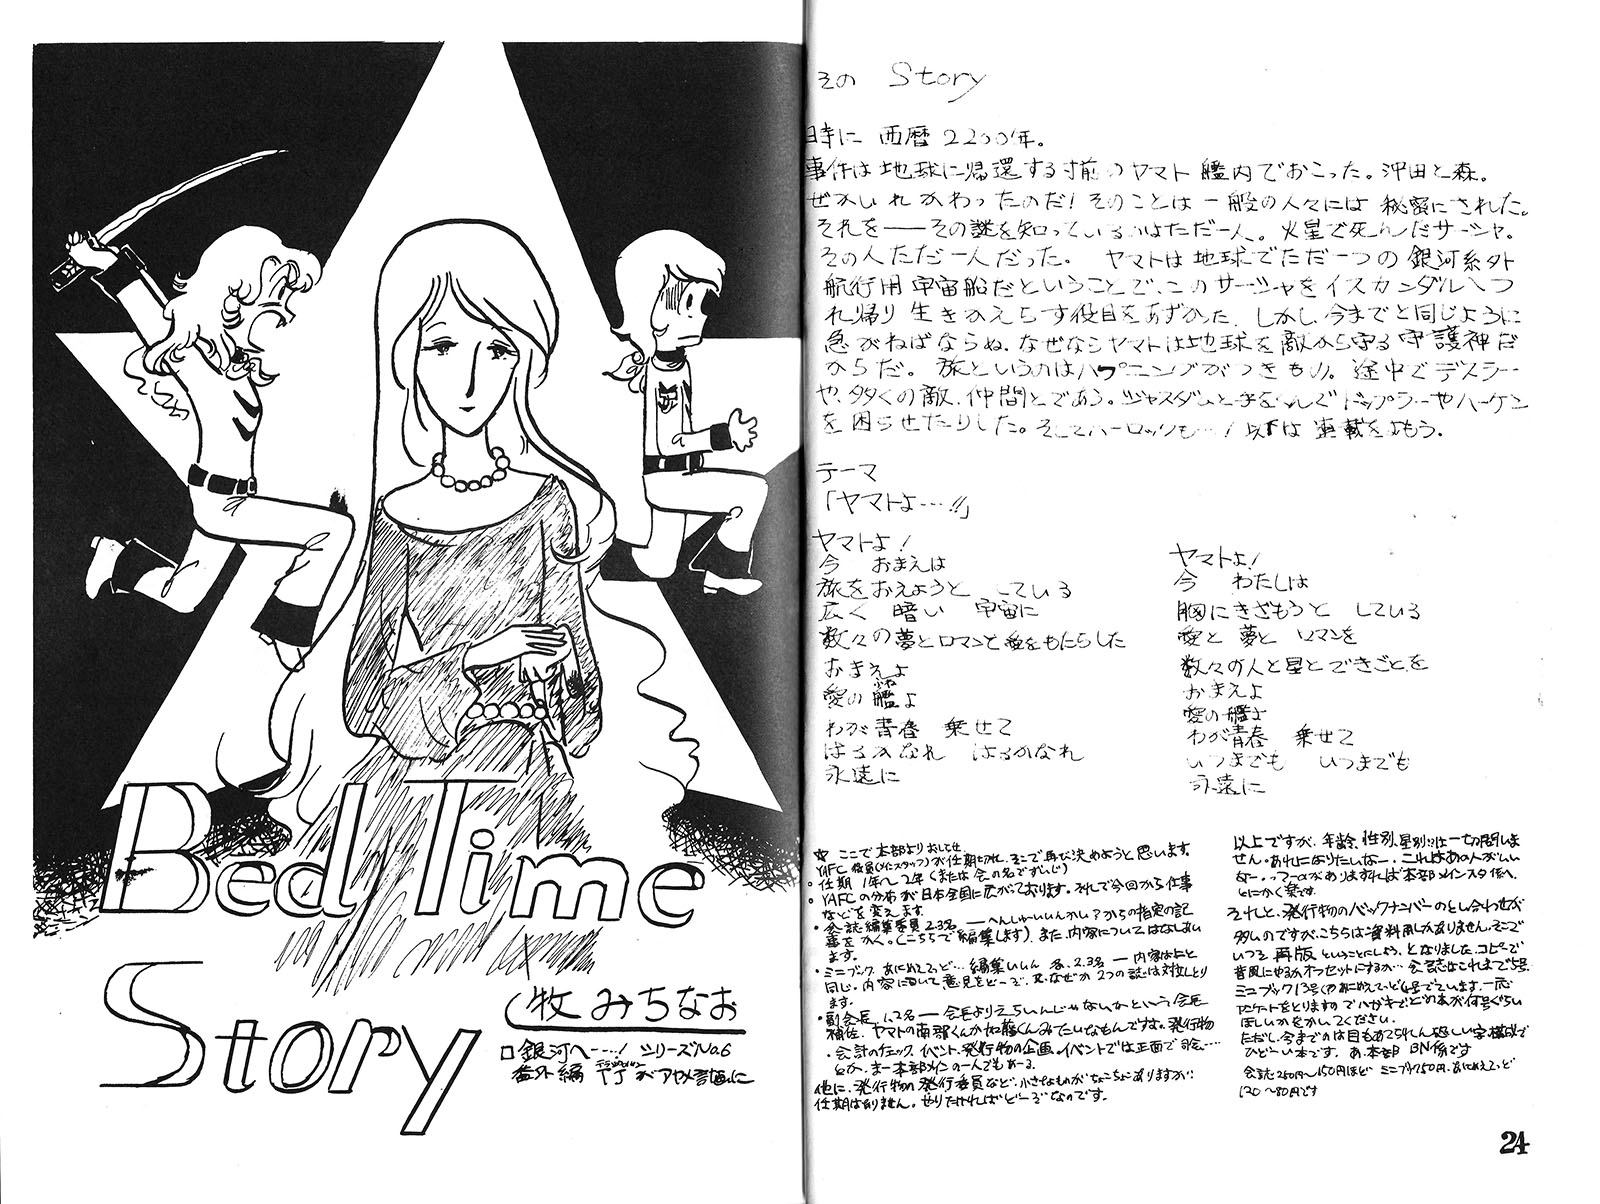 Bed Time
Story
牧 みちなお
□銀河へ…! シリーズNo.6
番外編
その Story
時に 西暦2200年。
事件は地球に帰還する寸前のヤマト艦内でおこった。沖田と森。
ぜかいれかわったのだ!そのことは一般の人々には秘密にされた。
それを――その謎を知っているのはただ一人。火星で死んだサーシャ。
その人ただ一人だった。 ヤマトは地球でただ一つの銀河系外
航行用宇宙船だということで、このサーシャをイスカンダルへつ
れ帰り生きかえらす役目をあずかった。しかし、今までと同じように
急がねばならぬ、なぜならヤマトは地球を敵から守る守護神だ
からだ。 旅というのはハプニングがつきもの。途中でデスラー
や、多くの敵、仲間とであう。ジャスダムと手をくんでドップラーやハーケン
を困らせたりした。そしてハーロックも…!以下は連載をよもう。
テーマ
「ヤマトよ…!!」
ヤマトよ!
今 おまえは
旅をおえようと している
広く 暗い 宇宙に
数々の夢とロマンと愛をもたらした
おまえよ
愛の艦よ
ふね
わが青春 乗せて
はるかなれ はるかなれ
永遠に
ヤマトよ!
今 わたしは
胸にきざもうと している
愛と 夢と ロマンを
数々の人と星とできごとを
おまえよ
愛の艦よ
わが青春 乗せて
いつまでも いつまでも
永遠に
☆ ここで本部よりおしらせ
YAFC 役員(メインスタッフ)が任期切れ、そこで再び決めようと思います。
・任期 1年〜2年(または会の名でずいじ)
・YAFCの分布が日本全国に広がっております。それで今回から仕事
などを変えます。
・会誌編集委員2.3名 ――へんしゅういいんかい?からの指定の記
事をかく。(こちらで編集します)また、内容についてはなしあい
ます。
・ミニブック、あにめてっど…編集いいん 各、2.3名 ― 内容は上と
同じ。内容について意見をどーぞ。又、なぜか2つの誌は対立しとり
ます。
・副会長 1,2名 ― 会長よりえらいんじゃないかという会長
補佐、ヤマトの南部くんか加藤くんみたいなもんです。発行物
・会計のチェック、イベント、発行物の企画。イベントでは正面で司会…
とか、まー本部メインの一人でもある。
他に、発行物の発行委員など、小さなものがちょこちょこありますが
任期はありません。やりたければどーぞなのです。
以上ですが、年齢、性別、星別は一切問いま
せん。あれになりたいなー、これはあの人がいい
なー。ってーのがありますれば本部メインスタ係へ、
とにかく楽です。
それと、発行物のバックナンバーのとい合わせが
多いのですが、こちらは資料用しかありません。そこで
いつそ 再版 ということにしよう。となりました。コピーで
昔風にやるかオフセットにするか…会誌はこれまで5号
ミニブック13号、あにめてっど4号でています。一応
アンケートをとりますのでハガキでどの本が何号ぐらい
ほしいかをかいてください。
ただし、今までのは目もあてられん恐しい字、模様で
ひどーい本です。 あ、本部 BN係です
会誌250円〜150円ほど ミニブック150円、あにめてっど
120〜80円です
24